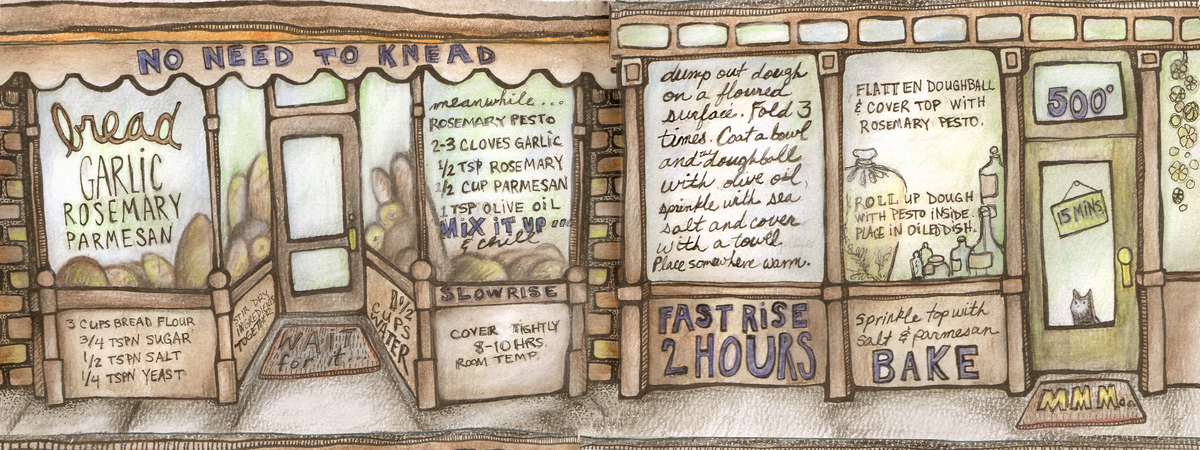 NO NEED TO KNEAD
bread
GARLIC
ROSEMARY
PARMESAN
3 CUPS BREAD FLOUR
3/4 TSPN SUGAR
1/2 TSPN SALT
1/4 TSPN YEAST
STIR DRY
INGREDIENTS
TOGETHER
WAIT
for it...
1 1/2
CUPS
WATER
meanwhile...
ROSEMARY PESTO
2-3 CLOVES GARLIC
1/2 TSP ROSEMARY
1/2 CUP PARMESAN
1 TSP OLIVE OIL
MIX IT UP...
& chill
SLOWRISE
COVER TIGHTLY
8-10 HRS.
ROOM TEMP.
dump out dough
on a floured
surface. Fold 3
times. Coat a bowl
and the doughball
with olive oil,
sprinkle with sea
salt and cover
with a towel.
Place somewhere warm.
FAST RISE
2 HOURS
FLATTEN DOUGHBALL
& COVER TOP WITH
ROSEMARY PESTO.
ROLL UP DOUGH
WITH PESTO INSIDE.
PLACE IN OILED DISH.
Sprinkle top with
salt & parmesan
BAKE
500°
15 MINS
MMM...